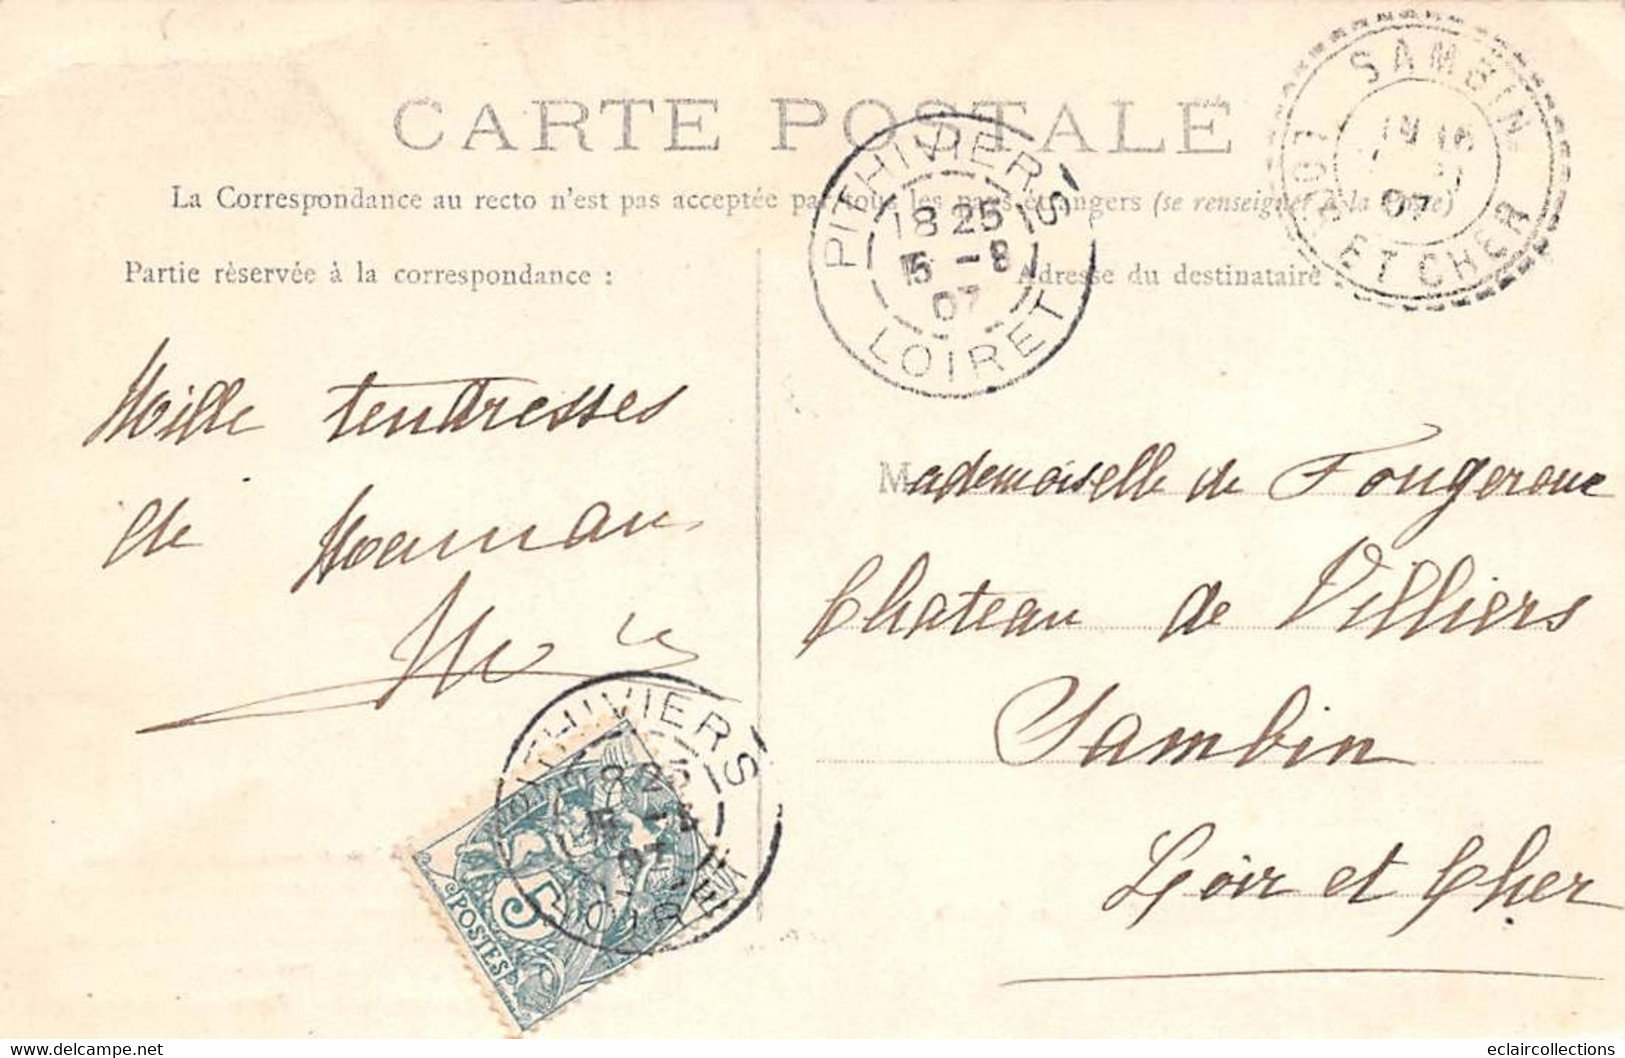 CARTE POSTALE
La Correspondance au recto n'est pas acceptée par tous les pays étrangers (se renseigner à la Poste)
Partie rèservée à la correspondance :
Adresse du destinataire
PITHIVIERS
18 25
15 -8
07
LOIRET
SAMBIN
16
07
LOIR ET CHER
Mille tendresses
de Maman
Mademoiselle de Fougeroue
Chateau de Villiers
Sambin
Loir et Cher
PITHIVIERS
18 25
15
07
LOIRET
5
POSTES
delcampe.net
eclaircollections